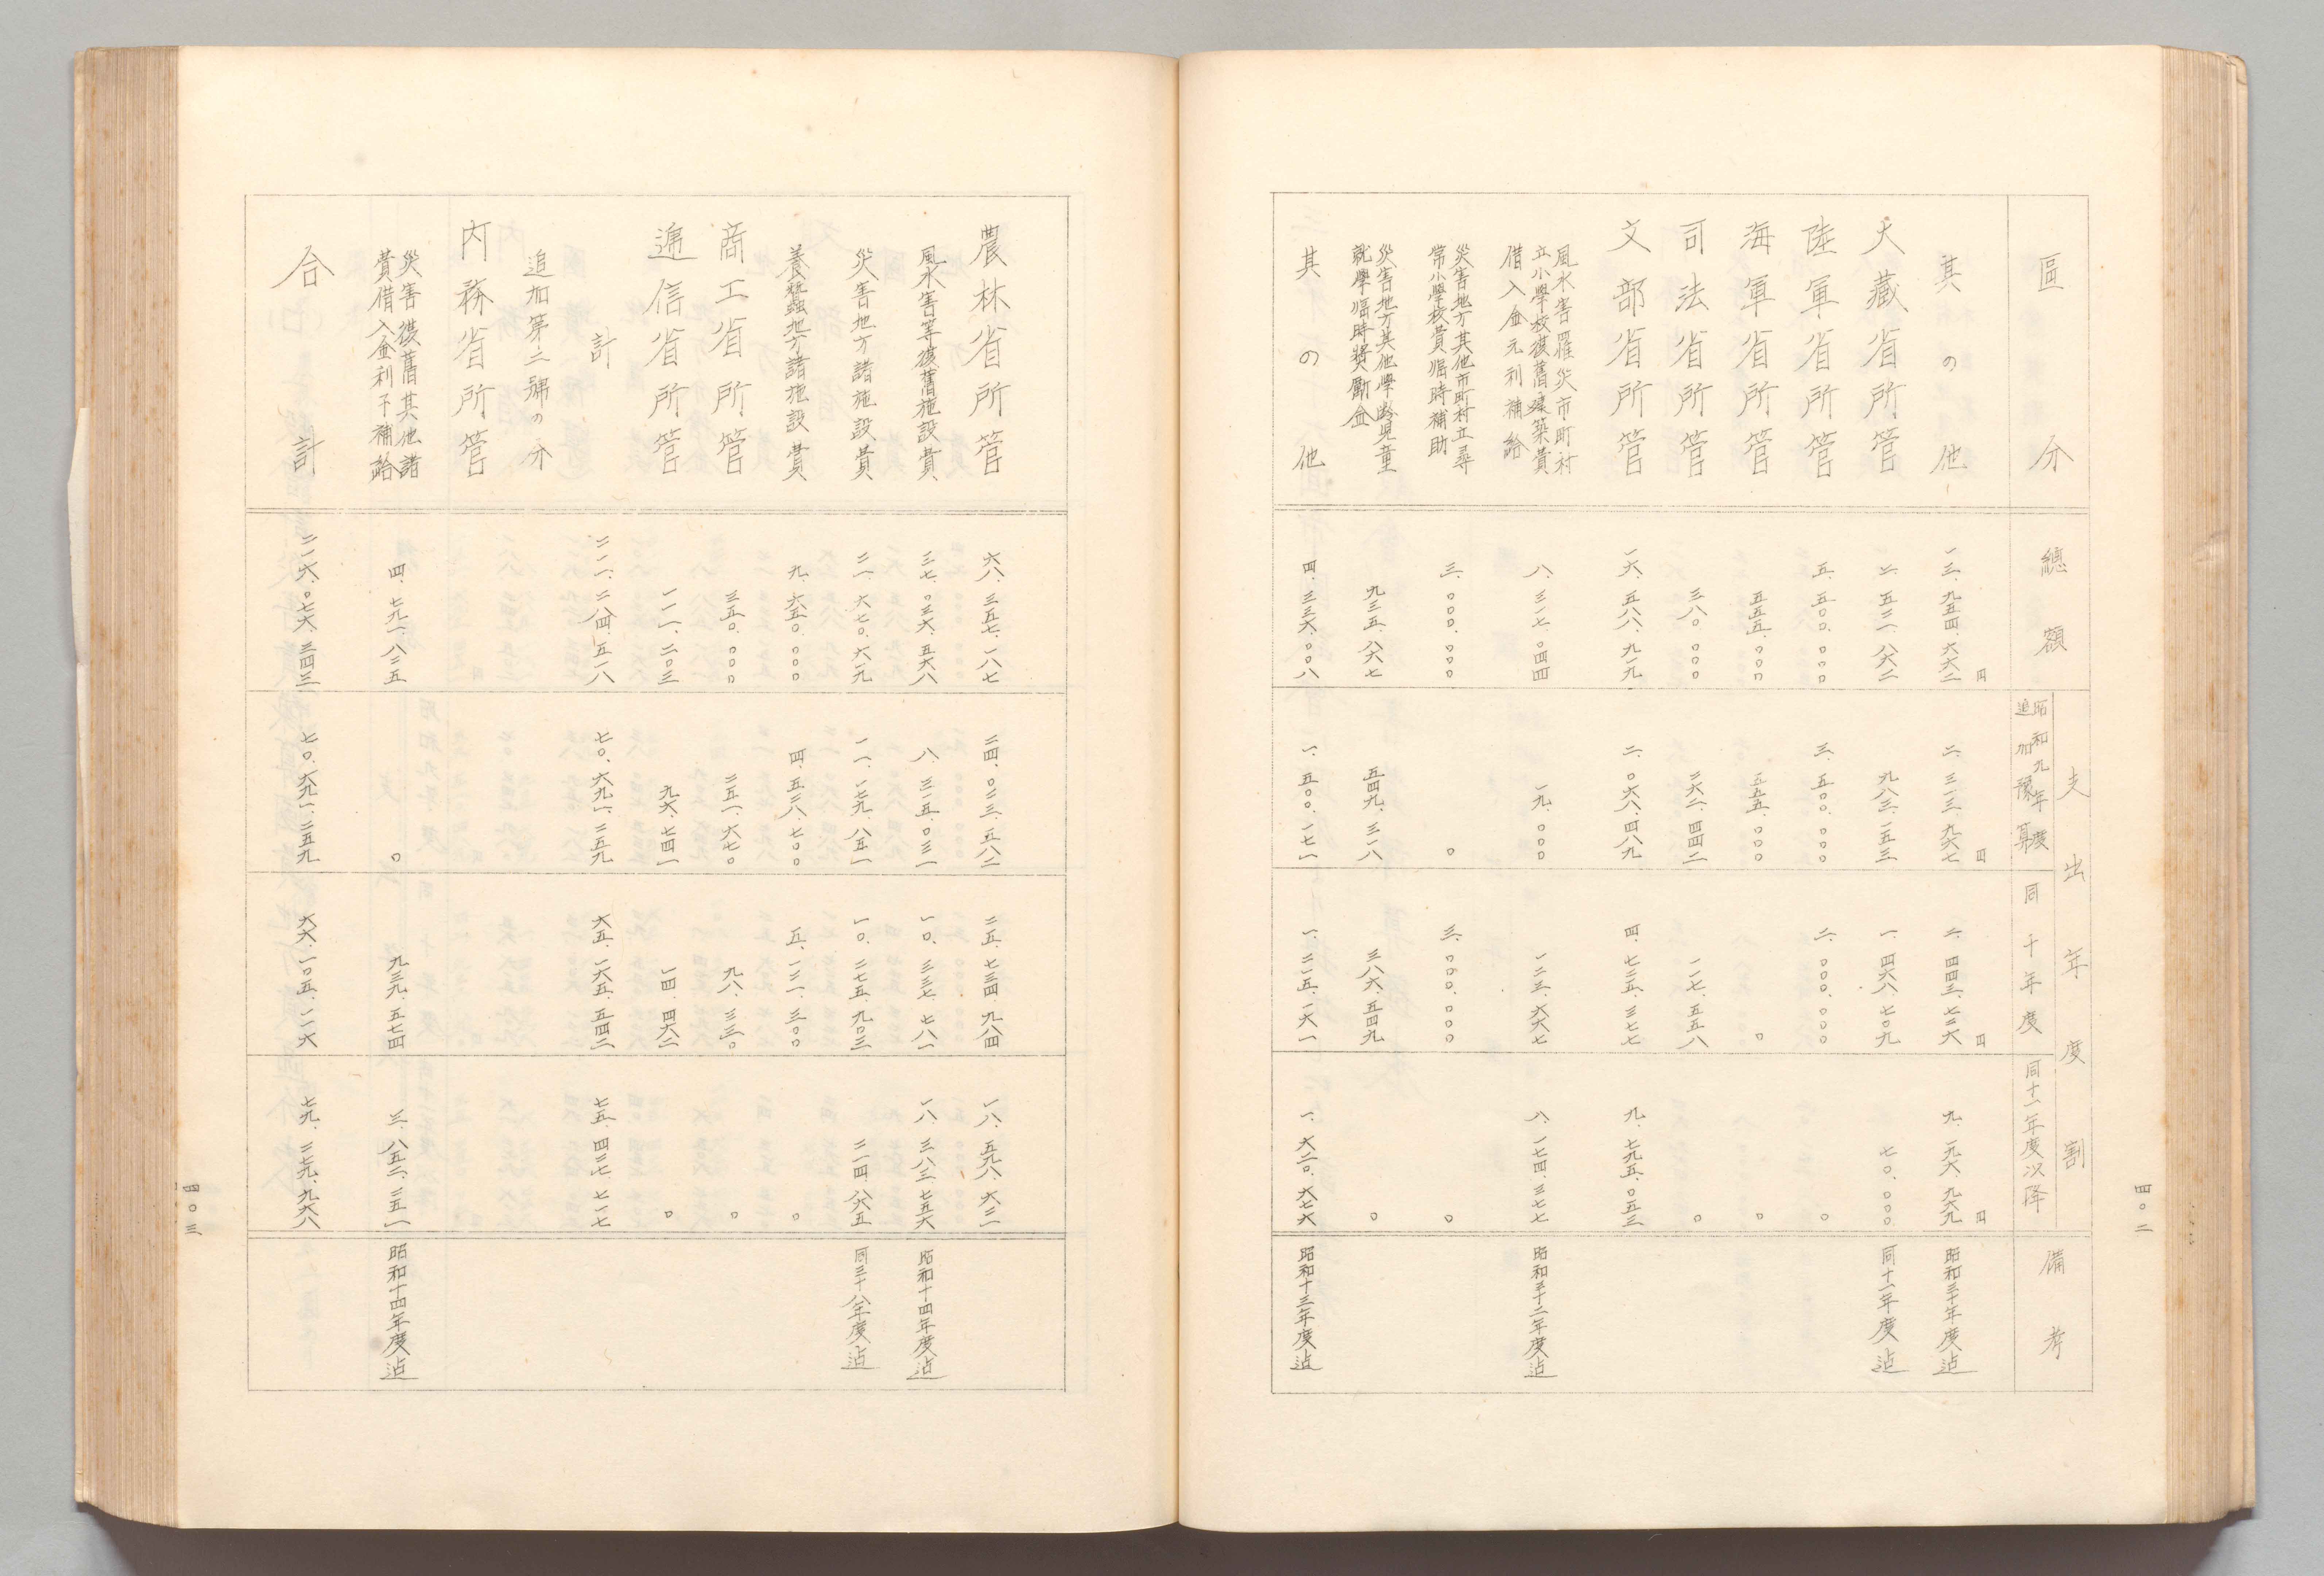 四〇二
區分 總額 支出年度割 備考
昭和九年度追加豫算 同十年度 同十一年度以降
円 円 円 円
其の他 一三、九五四、六六二 二、三一三、九六七 二、四四三、七二六 九、一九六、九六九 昭和三十年度迠
大藏省所管 二、五二一、八六二 九八三、一五三 一、四六八、七〇九 七〇、〇〇〇 同十一年度迠
陸軍省所管 五、五〇〇、〇〇〇 三、五〇〇、〇〇〇 二、〇〇〇、〇〇〇 〇
海軍省所管 五五五、〇〇〇 五五五、〇〇〇 〇 〇
司法省所管 三八〇、〇〇〇 二六二、四四二 一一七、五五八 〇
文部省所管 一六、五八八、九一九 二、〇六八、四八九 四、七二五、三七七 九、七九五、〇五三
風水害罹災市町村
立小學校復舊建築費
借入金元利補給 八、三一七、〇四四 一九、〇〇〇 一二三、六六七 八、一七四、三七七 昭和三十二年度迠
災害地方其他市町村立尋
常小學校費臨時補助 三、〇〇〇、〇〇〇 〇 三、〇〇〇、〇〇〇 〇
災害地方其他學齡兒童
就學臨時奬勵金 九三五、八六七 五四九、三一八 三八六、五四九 〇
其の他 四、三三六、〇〇八 一、五〇〇、一七一 一、二一五、一六一 一、六二〇、六七六 昭和十三年度迠
農林省所管 六八、三五七、一八七 二四、〇二三、五八二 二五、七三四、九八四 一八、五九八、六二一
風水害等復舊施設費 三七、〇三六、五六八 八、三一五、〇三一 一〇、三三七、七八一 一八、三八三、七五六 昭和十四年度迠
災害地方諸施設費 二一、六七〇、六一九 一一、一七九、八五一 一〇、二七五、九〇三 二一四、八六五 同三十八年度迠
養蠶地方諸施設費 九、六五〇、〇〇〇 四、五二八、七〇〇 五、一二一、三〇〇 〇
商工省所管 三五〇、〇〇〇 二五一、六七〇 九八、三三〇 〇
遞信省所管 一一一、二〇三 九六、七四一 一四、四六二 〇
計 二一一、二八四、五一八 七〇、六九一、二五九 六五、一六五、五四二 七五、四二七、七一七
追加第二號の分
内務省所管
災害復舊其他諸
費借入金利子補給 四、七九一、八二五 〇 九三九、五七四 三、八五二、二五一 昭和十四年度迠
合計 二一六、〇七六、三四三 七〇、六九一、二五九 六六、一〇五、一一六 七九、二七九、九六八
四〇三